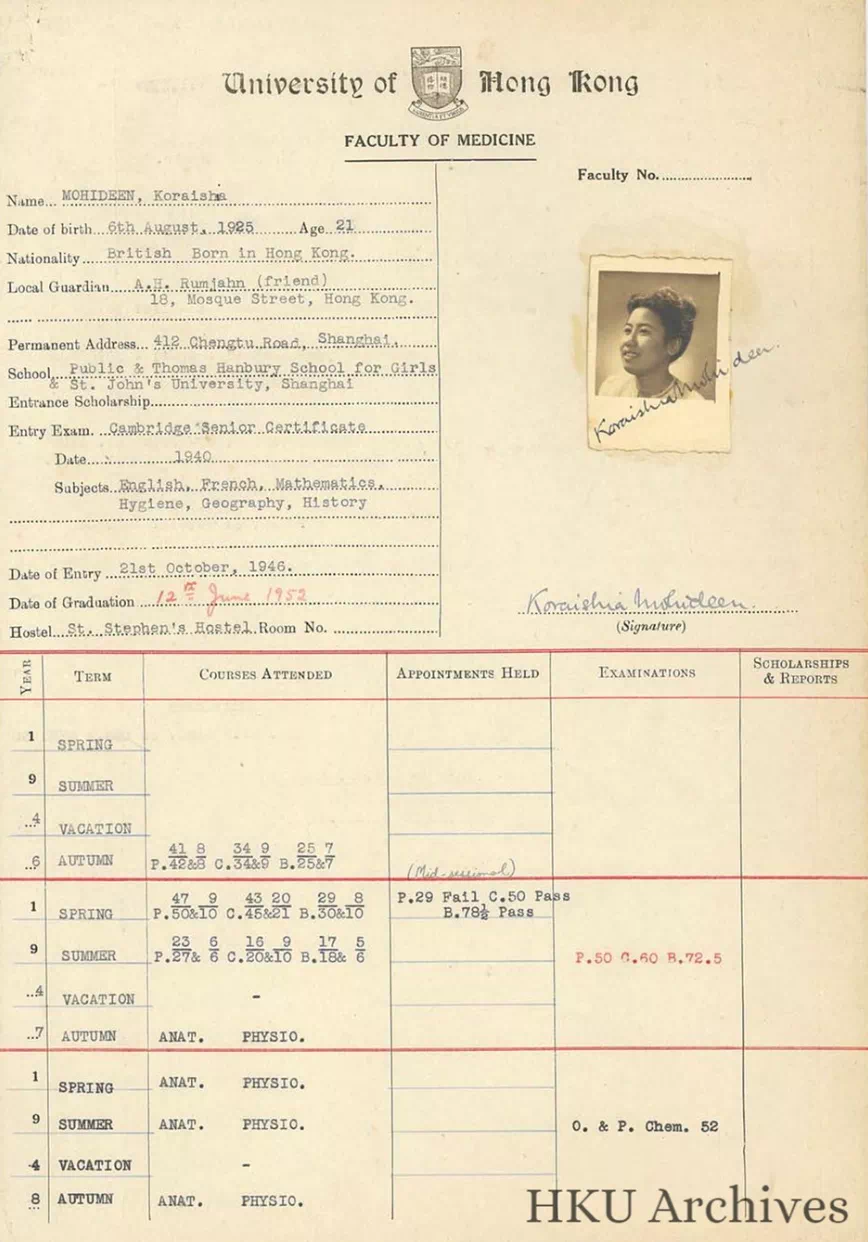 University of Hong Kong
FACULTY OF MEDICINE
Faculty No.
Name... MOHIDEEN, Koraisha
Date of birth...6th August, 1925 Age..21
Nationality British Born in Hong Kong.
Local Guardian A.H. Rumjahn (friend)
18, Mosque Street, Hong Kong.
Permanent Address... 412 Chengtu Road, Shanghai.
School Public & Thomas Hanbury School for Girls
& St. John's University, Shanghai
Entrance Scholarship
Entry Exam. Cambridge Senior Certificate
Date 1940
Subjects English, French, Mathematics,
Hygiene, Geography, History
Date of Entry 21st October, 1946.
Date of Graduation 12th June 1952
Hostel St. Stephen's Hostel Room No.
Koraishia Mohideen
Koraishia Mohideen.
(Signature)
YEAR TERM COURSES ATTENDED APPOINTMENTS HELD EXAMINATIONS SCHOLARSHIPS & REPORTS
1 SPRING
9 SUMMER
..4 VACATION
41 8 34 9 25 7
..6 AUTUMN P.42&8 C.34&9 B.25&7
(Mid-sessional)
47 9 43 20 29 8 P.29 Fail C.50 Pass
1 SPRING P.50&10 C.45&21 B.30&10 B.78½ Pass
23 6 16 9 17 5
9 SUMMER P.27& 6 C.20&10 B.18& 6 P.50 C.60 B.72.5
...4 VACATION -
...7 AUTUMN ANAT. PHYSIO.
1 SPRING ANAT. PHYSIO.
9 SUMMER ANAT. PHYSIO. O. & P. Chem. 52
4 VACATION -
8 AUTUMN ANAT. PHYSIO.
HKU Archives